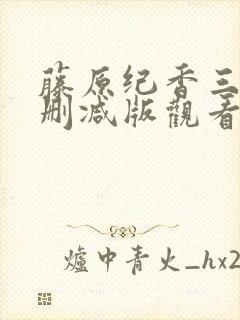 藤原纪香三
刪减版觀看
爐中青火_hx2